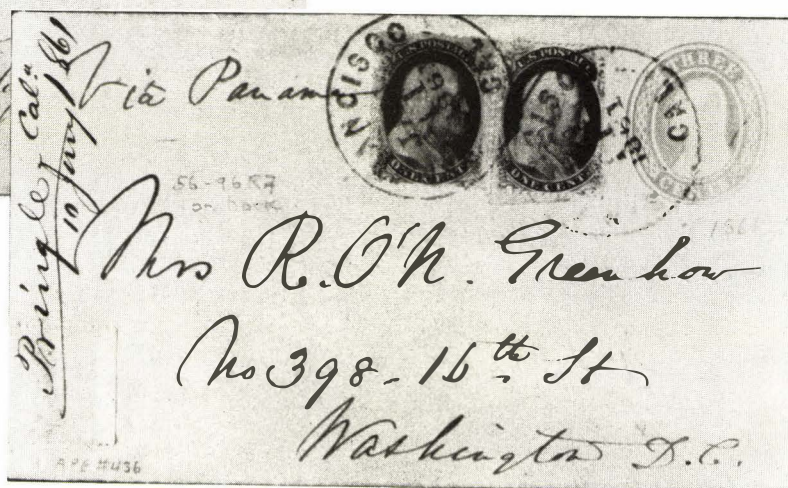 Pringle Cala
10 Jany 1861
Via Panama
NCISCO
U.S. POSTAGE
ONE CENT
U.S. POSTAGE
ONE CENT
THREE
CENTS
CAL
1861
56-9687
on back
1861
Mrs R. O'N. Greenhow
No 398 - 16th St
Washington D.C.
APE #436